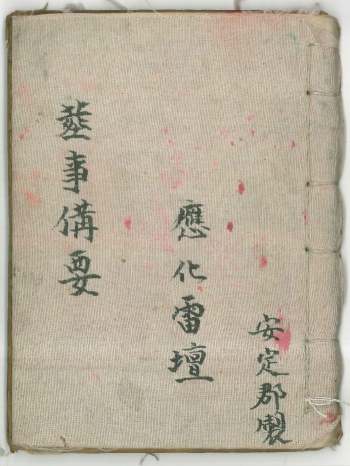 安定郡製
應化雷壇
塟事備要